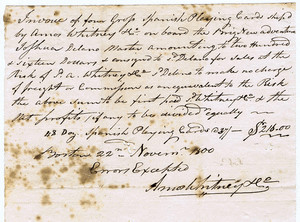 Invoice of four Gross Spanish Playing Cards shipd
by Amos Whitney &Co on board the Brig New adventure
Joshua Delano Master amounting to two hundred
& Sixteen Dollars & consignd to J Delano for sales at the
Risk of A. Whitney &Co J Delano to make no charge
of freight or Commissions as an equivalent to the Risk
the above sum to be first paid A Whitney &Co & the
Net profits if any to be divided equally
48 Doz. Spanish Playing Cards @ $216.00
Boston 22nd Novem 1800
Errors Excepted
Amos Whitney &Co